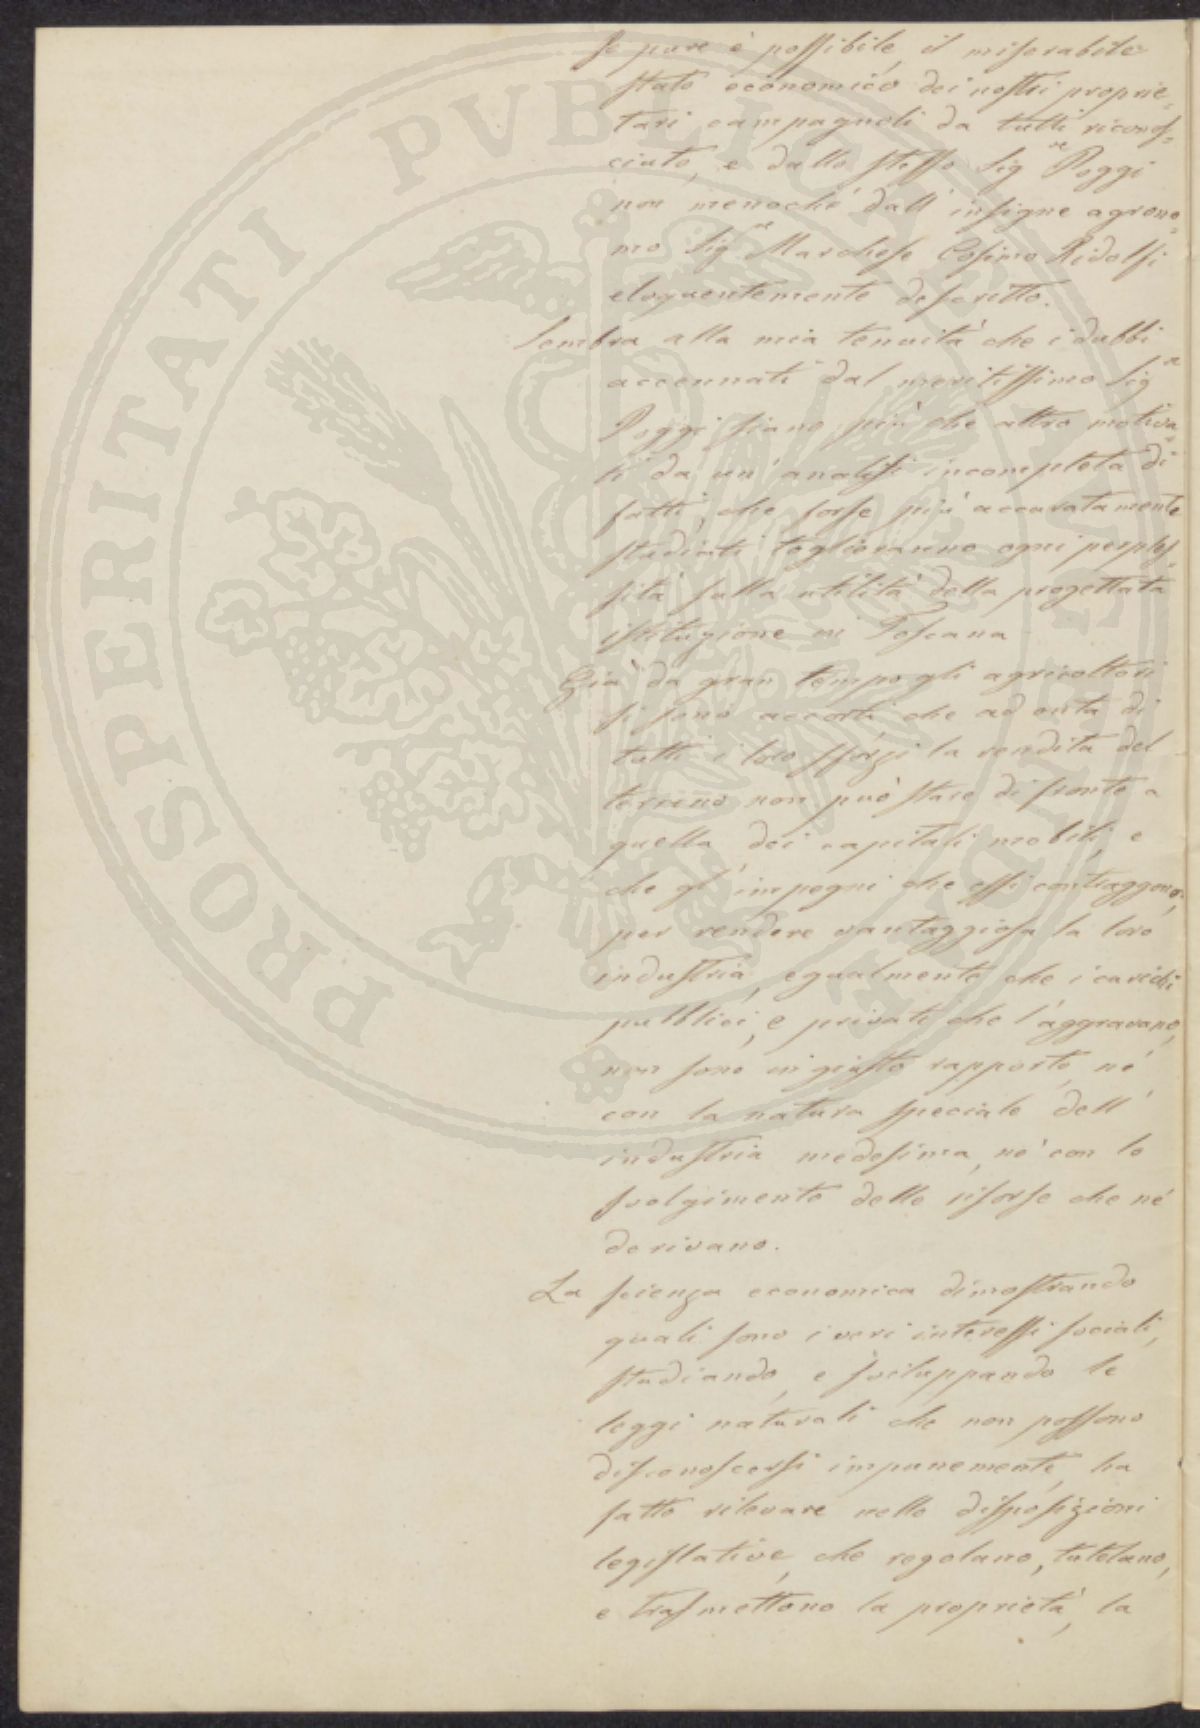 se pure è possibile, il miserabile
stato economico dei nostri proprie=
tari campagnoli da tutti ricono=
sciuto, e dallo stesso Sig.re Poggi
non menoché dall'insigne agrono=
mo Sig.re Marchese Cosimo Ridolfi
eloquentemente descritto.
Sembra alla mia tenuità che i dubbi
accennati dal meritissimo Sig.e
Poggi siano più che altro motiva=
ti da un'analisi incompleta di
fatti, che forse più accuratamente
studiati toglieranno ogni perples=
sità sulla utilità della progettata
istituzione in Toscana
Già da gran tempo gli agricoltori
si sono accorti che ad onta di
tutti i loro sforzi la rendita del
terreno non può stare di fronte a
quella dei capitali mobili, e
che gl'impegni che essi contraggono,
per rendere vantaggiosa la loro
industria, egualmente che i carichi
pubblici, e privati che l'aggravano,
non sono in giusto rapporto, né
con la natura speciale dell'
industria medesima, né con lo
svolgimento delle risorse che né
derivano.
La scienza economica dimostrando
quali sono i veri interessi sociali,
studiando, e sviluppando le
leggi naturali che non possono
disconoscersi impunemente, ha
fatto rilevare nelle disposizioni
legislative, che regolano, tutelano,
e trasmettono la proprietà, la
PROSPERITATI PVBLICAE AVGENDAE